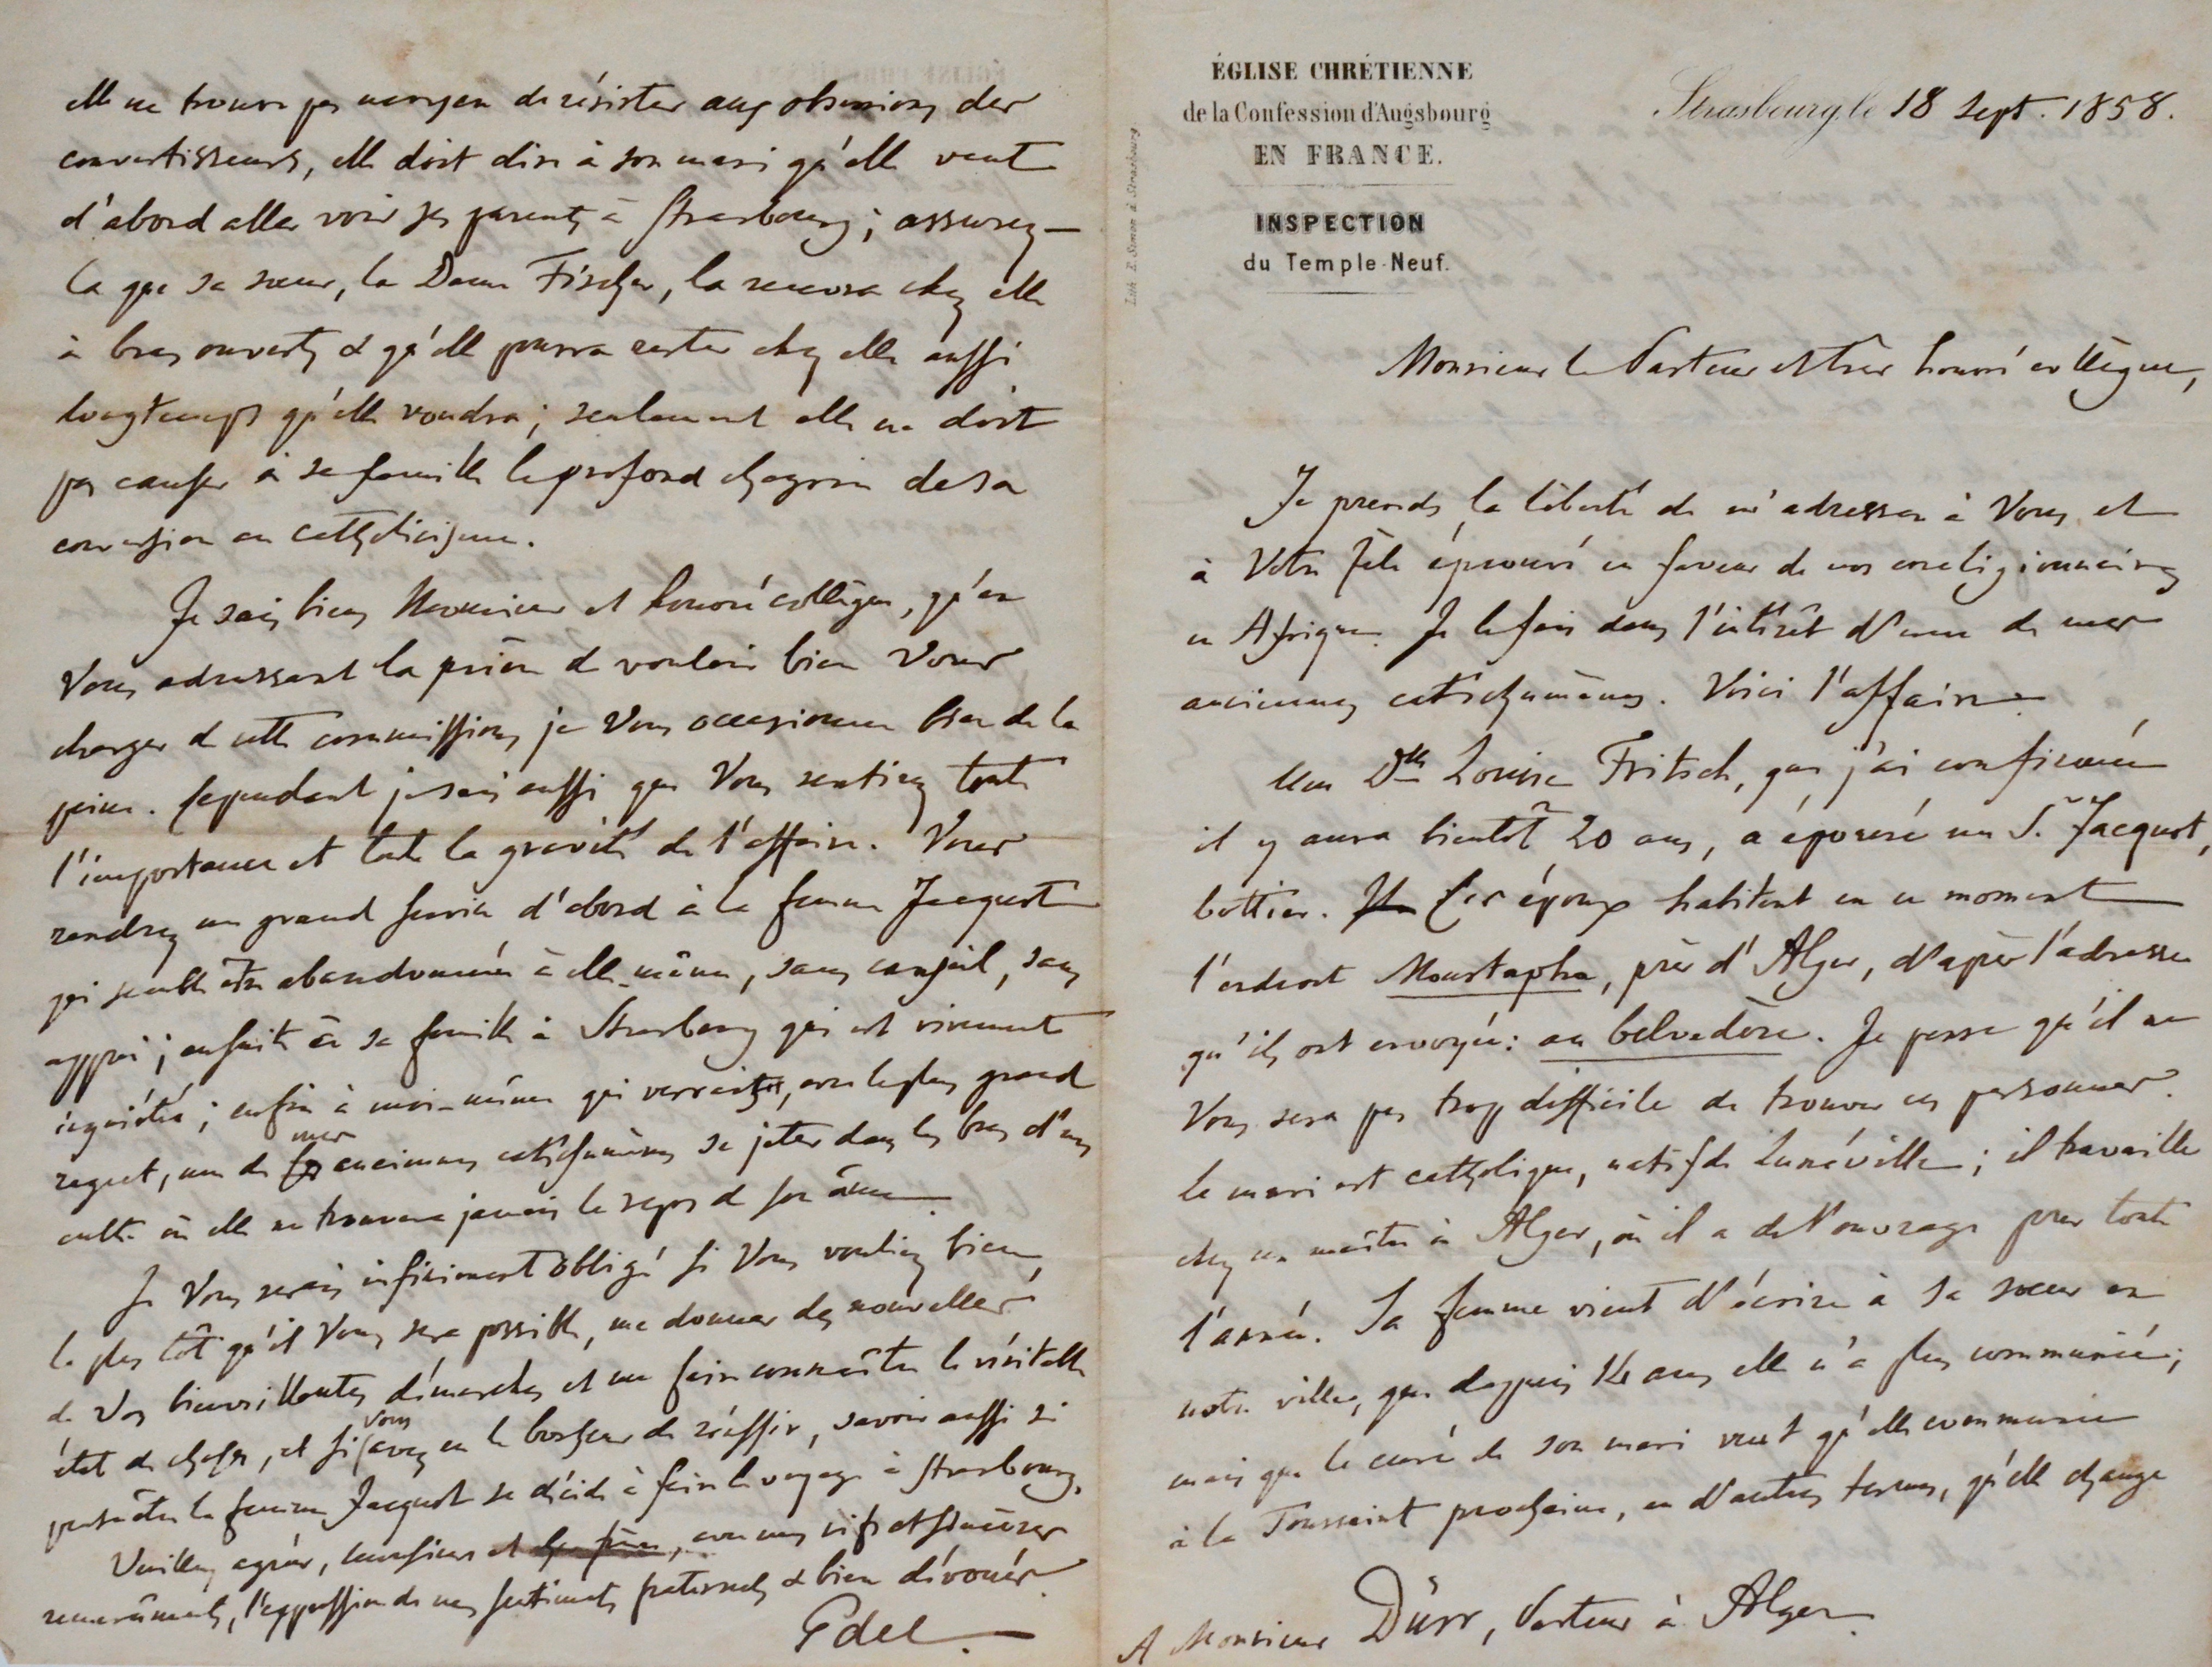 ÉGLISE CHRÉTIENNE
de la Confession d'Augsbourg
EN FRANCE.
INSPECTION
du Temple-Neuf.
Lith. E. Simon à Strasbourg.
Strasbourg, le 18 Sept. 1858.
Monsieur le Pasteur et très honoré collègue,
Je prends la liberté de m'adresser à Vous et
à Votre zèle éprouvé en faveur de nos coreligionnaires
en Afrique. Je le fais dans l'intérêt d'une de mes
anciennes catéchumènes. Voici l'affaire.
Une Dlle Louise Fritsch, que j'ai confirmée
il y aura bientôt 20 ans, a épousé un S. Jacquot,
bottier. Les époux habitent en ce moment
l'endroit Moustapha, près d'Alger, d'après l'adresse
qu'ils ont envoyée: au belvedère. Je pense qu'il ne
Vous sera pas trop difficile de trouver ces personnes.
Le mari est catholique, natif de Lunéville; il travaille
chez un maître à Alger, où il a de l'ouvrage pour toute
l'année. Sa femme vient d'écrire à sa soeur en
notre ville, que depuis 14 ans elle n'a plus communié;
mais que le curé de son mari veut qu'elle communie
à la Toussaint prochaine, en d'autres termes, qu'elle change
A Monsieur Dürr, Pasteur à Alger.
elle ne trouve pas moyen de résister aux obsessions des
convertisseurs, elle doit dire à son mari qu'elle veut
d'abord aller voir ses parents à Strasbourg; assurez-
la que sa soeur, la Dame Fischer, la recevra chez elle
à bras ouverts & qu'elle pourra rester chez elle aussi
longtemps qu'elle voudra; seulement elle ne doit
pas causer à sa famille le profond chagrin de sa
conversion au catholicisme.
Je sais bien Monsieur et honoré collègue, qu'en
Vous adressant la prière de vouloir bien Vous
charger de cette commission, je Vous occasionne bien de la
peine. Cependant je sais aussi que Vous sentirez toute
l'importance et toute la gravité de l'affaire. Vous
rendrez un grand service d'abord à la femme Jacquot
qui semble être abandonnée à elle-même, sans conseil, sans
appui; ensuite à sa famille à Strasbourg qui est vivement
inquiétée; enfin à moi-même qui verrais, avec le plus grand
regret, une de mes anciennes catéchumènes se jeter dans les bras d'un
culte où elle ne trouvera jamais le repos de son âme.
Je Vous serais infiniment obligé si Vous vouliez bien,
le plus tôt qu'il Vous sera possible, me donner des nouvelles
de Vos bienveillantes démarches et me faire connaître le véritable
état de choses, et si Vous avez eu le bonheur de réussir, savoir aussi si
peut-être la femme Jacquot se décide à faire le voyage à Strasbourg.
Veuillez agréer, Monsieur et, avec mes vifs et sincères
remercîments, l'expression de mes sentiments fraternels & bien dévoués.
Edel.